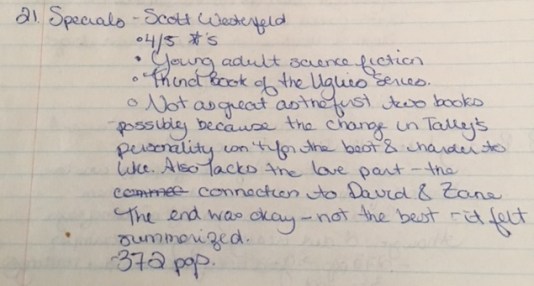 21. Specials - Scott Westerfeld
• 4/5 *'s
• Young adult science fiction
• Third book of the Uglies Series.
• Not as great as the first two books
possibly because the change in Tally's
personality isn't for the best & harder to
like. Also lacks the love part - the
connection to David & Zane
The end was okay - not the best - it felt
summarized.
• 372 pgs.